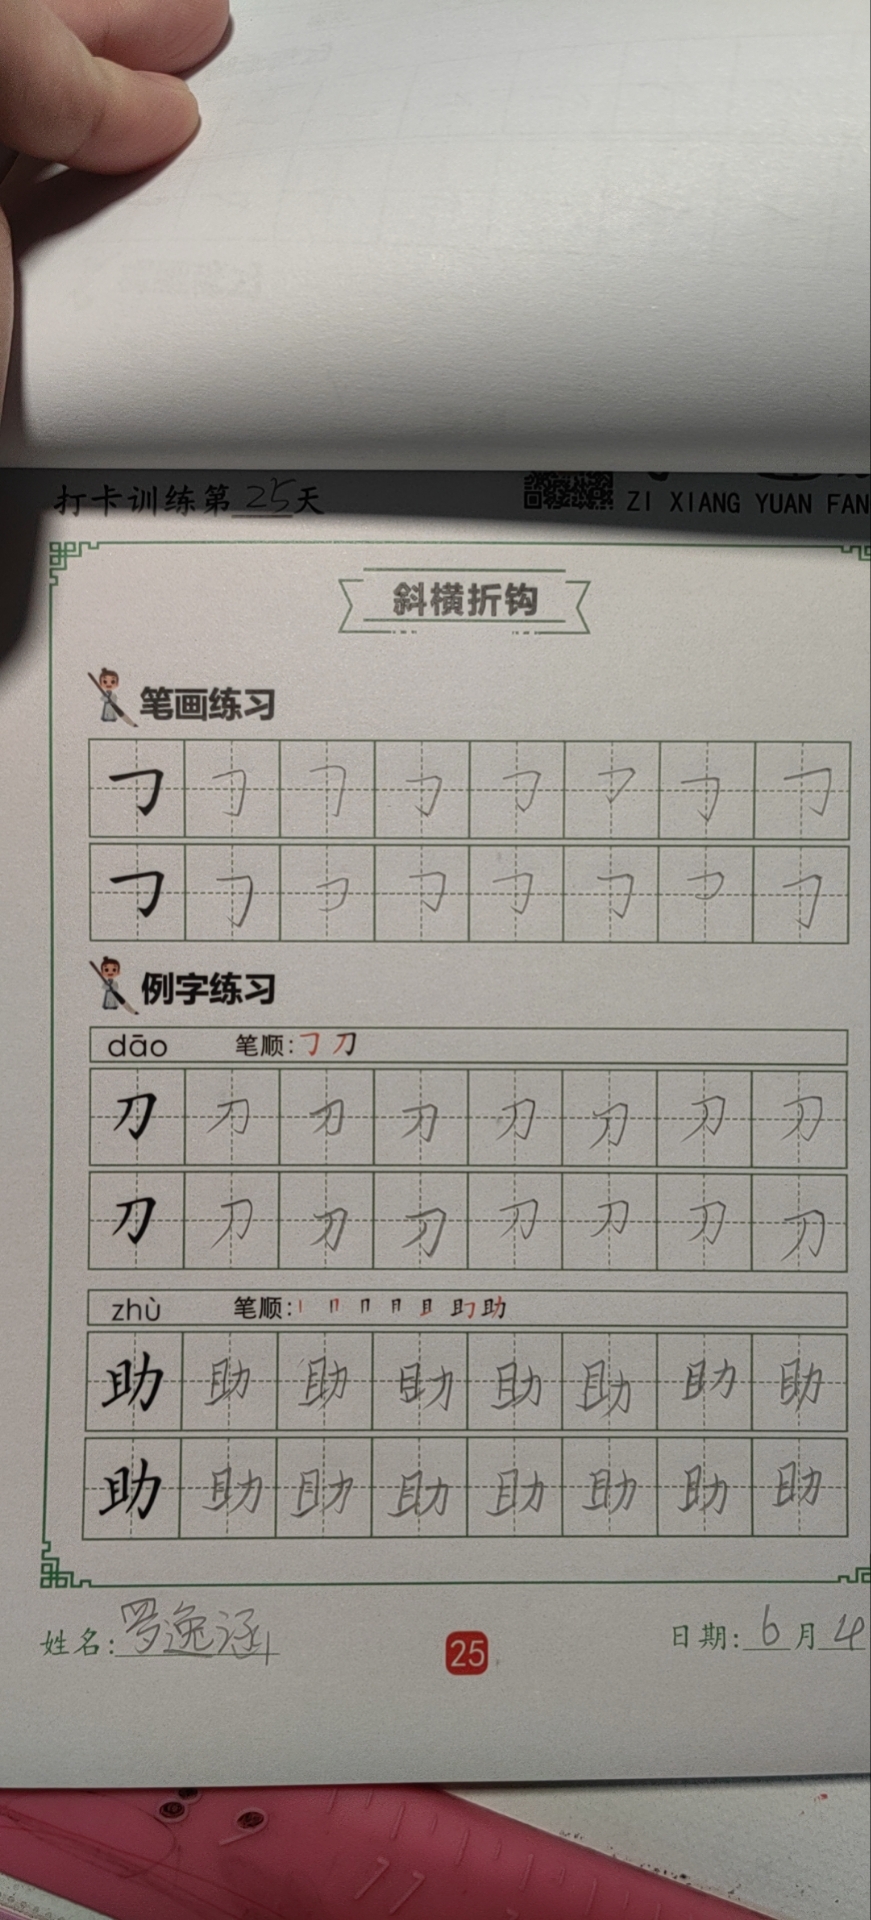 打卡训练第25天
ZI XIANG YUAN FAN
斜横折钩
笔画练习
㇆ ㇆ ㇆ ㇆ ㇆ ㇆ ㇆ ㇆
㇆ ㇆ ㇆ ㇆ ㇆ ㇆ ㇆ ㇆
例字练习
dāo 笔顺:㇆ 刀
刀 刀 刀 刀 刀 刀 刀 刀
刀 刀 刀 刀 刀 刀 刀 刀
zhù 笔顺:
助 助 助 助 助 助 助 助
助 助 助 助 助 助 助 助
姓名:罗逸涵 25 日期:6月4